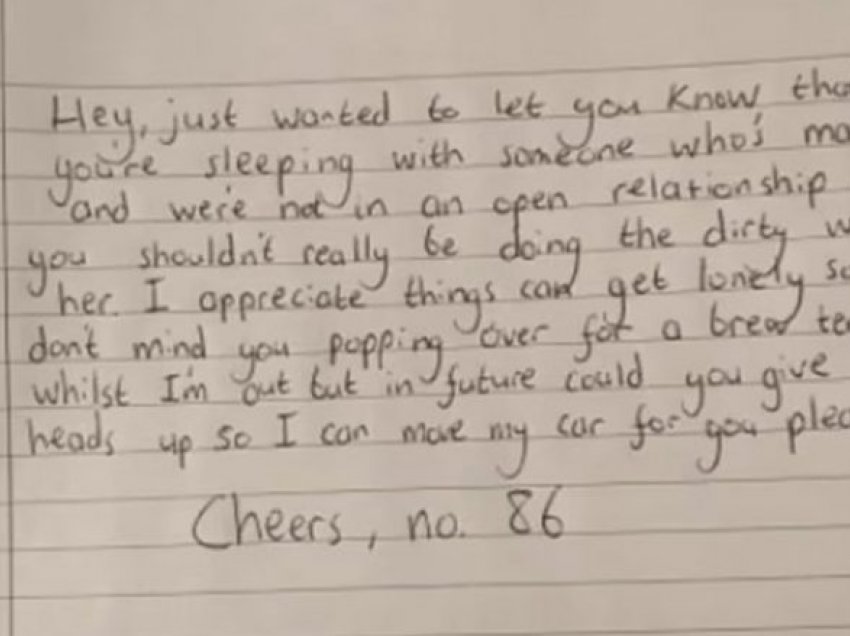 Hey, just wanted to let you know tha
you're sleeping with someone who's ma
and we're not in an open relationship
you shouldn't really be doing the dirty w
her. I appreciate things can get lonely so
don't mind you popping over for a brew te
whilst I'm out but in future could you give
heads up so I can move my car for you plea
Cheers, no. 86